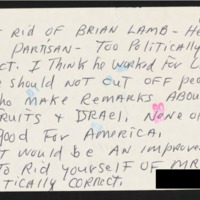 RID OF BRIAN LAMB - HE
PARTISAN - TOO POLITICALLY
CT. I THINK HE WORKED FOR
SHOULD NOT CUT OFF PEO
HO MAKE REMARKS ABOU
RUITS & ISRAEL. NONE O
GOOD FOR AMERICA.
T WOULD BE AN IMPROVEM
TO RID YOURSELF OF MR
TICALLY CORRECT.